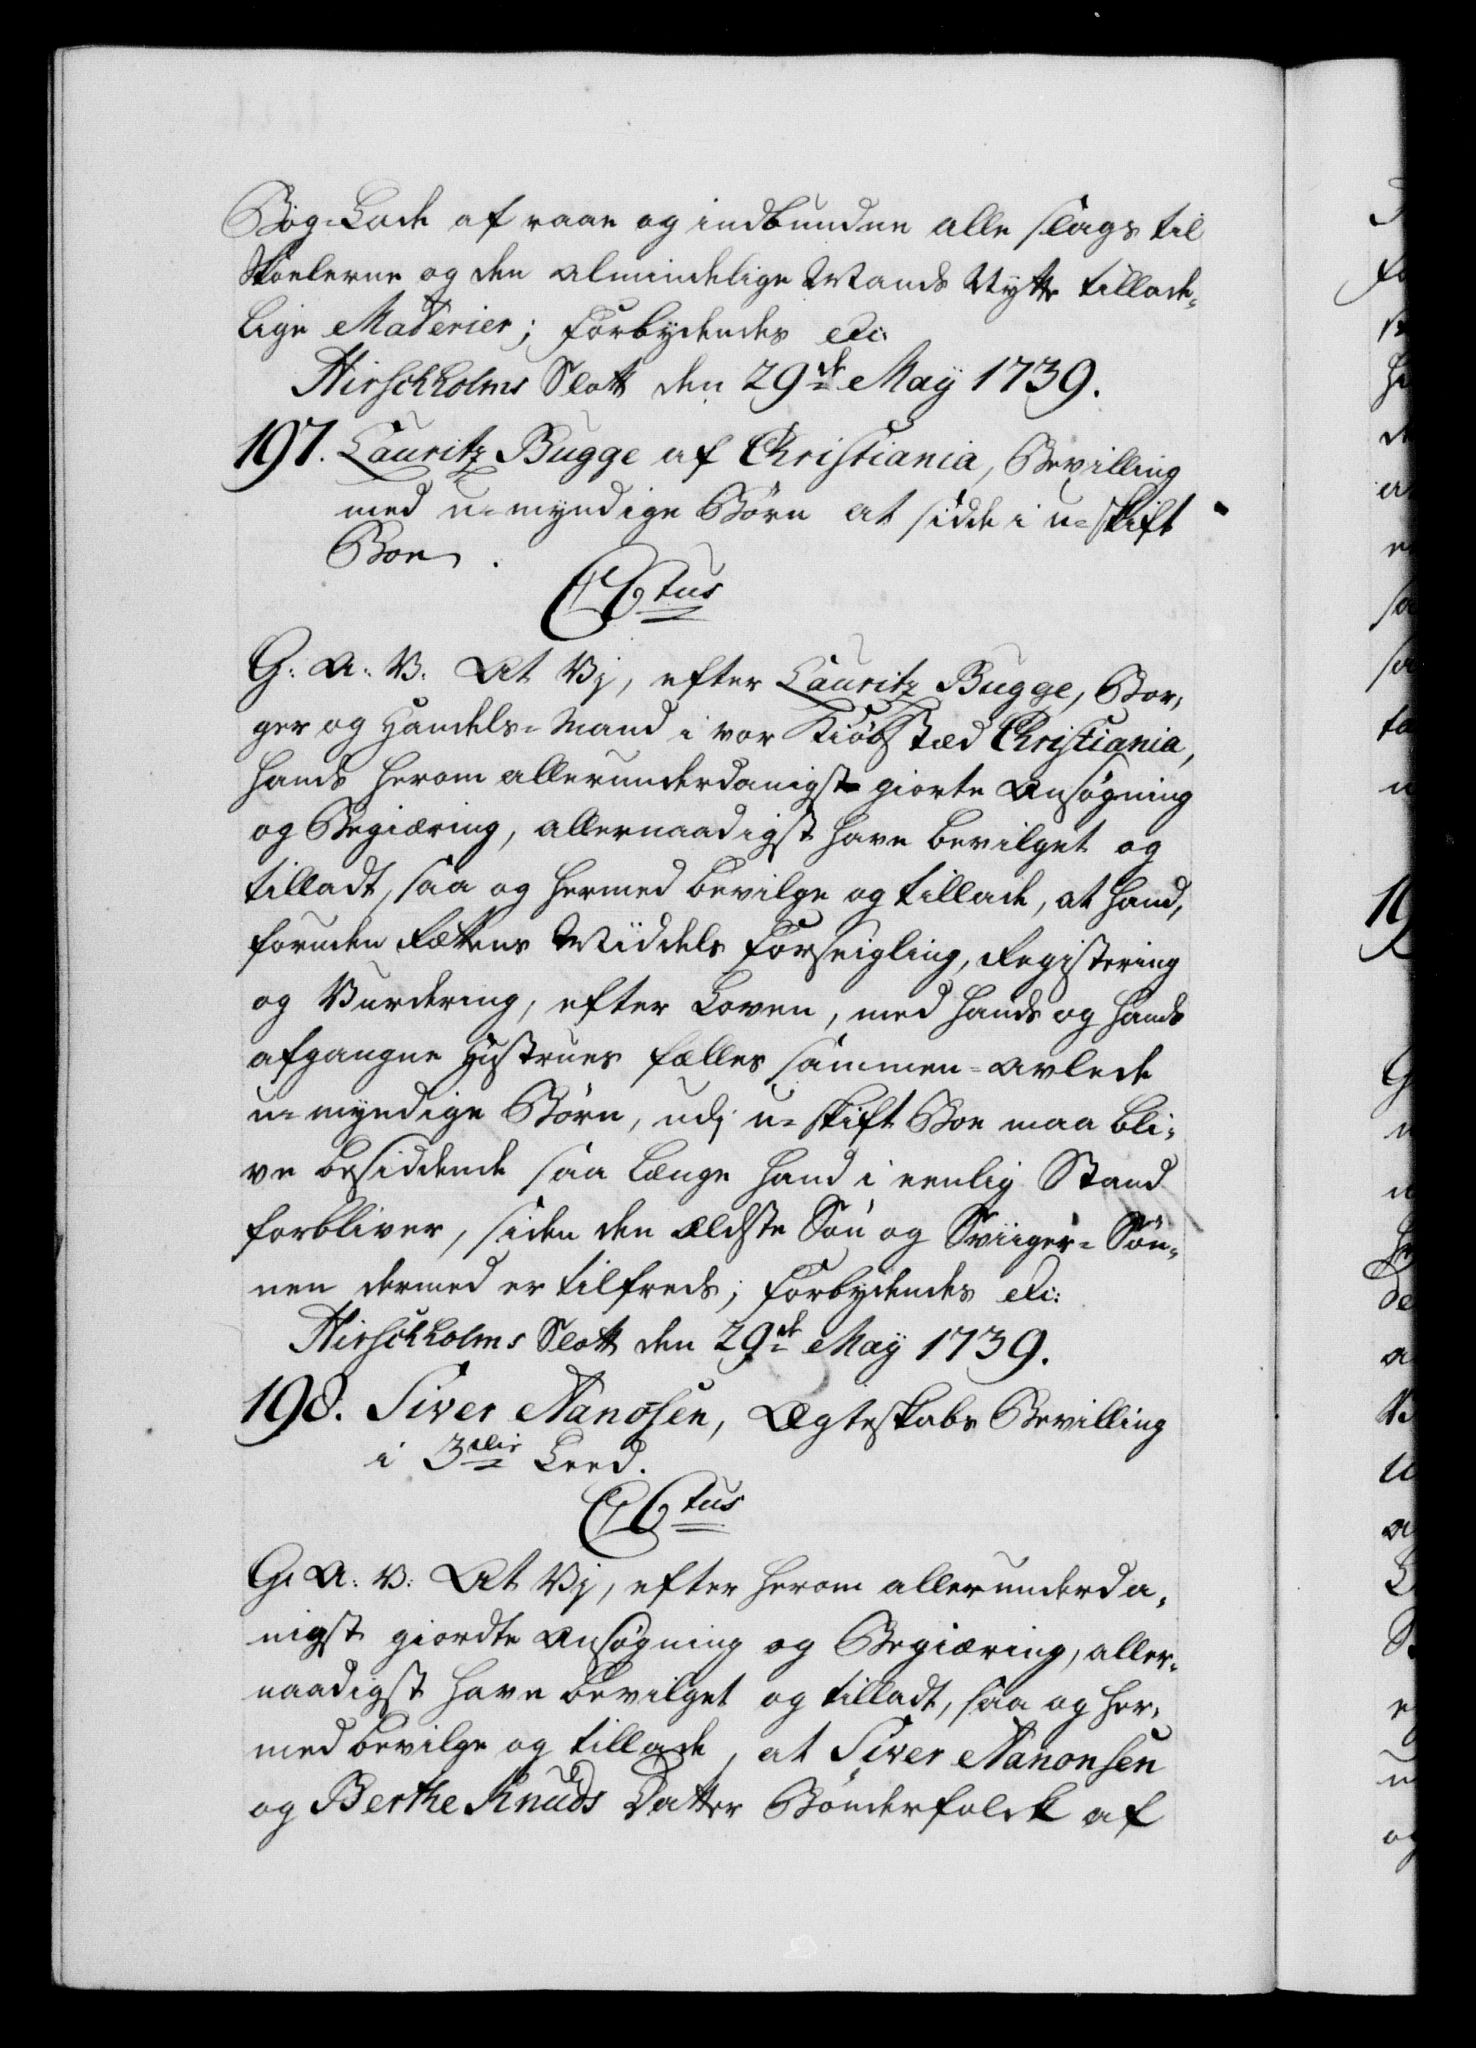 Bog-Lade af raae og indbundne alle slags til
Skoelerne og den almindelige Mands Nytte tillade-
lige Materier; Forbydendes etc:
Hirschholms Slott den 29de May 1739.
197. Lauritz Bugge af Christiania, Bevilling
med u-myndige Børn at sidde i u-skift
Boe.
C 6tus
G. A. V. At Vj, efter Lauritz Bugge, Bor-
ger og Handels-Mand i vor Kiøbstæd Christiania,
hands herom allerunderdanigst giorte Ansøgning
og Begiæring, allernaadigst have bevilget og
tilladt, saa og hermed bevilge og tillade, at hand,
foruden Rettens Middels Forseigling, Registering
og Vurdering, efter Loven, med hands og hands
afgangne Hustrues fælles sammen-avlede
u-myndige Børn, udj u-skift Boe maa bli-
ve besiddende saa længe hand i eenlig Stand
forbliver, siden den ældste Søn og Sviiger-Søn-
nen dermed er tilfreds; Forbydendes etc:
Hirschholms Slott den 29de May 1739.
198. Siver Nanosen, Ægteskabs Bevilling
i 3die Leed.
C 6tus
G. A. V. At Vj, efter herom allerunderda-
nigst giordte Ansøgning og Begiæring, aller-
naadigst have bevilget og tilladt, saa og her-
med bevilge og tillade, at Siver Nanonsen
og Berthe Knuds Datter Bønderfolck af